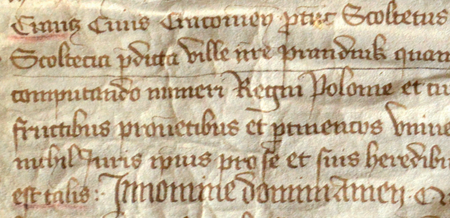 Civis Cracovien ptunc Scoltetus
Scoltecia pdicta ville nre prandnik quam
computando numeri Regni Polonie et cu
fructibus proventibus et ptinentiis unive
nichil Juris ipius pro se et suis heredibu
est talis: In nomine domini amen